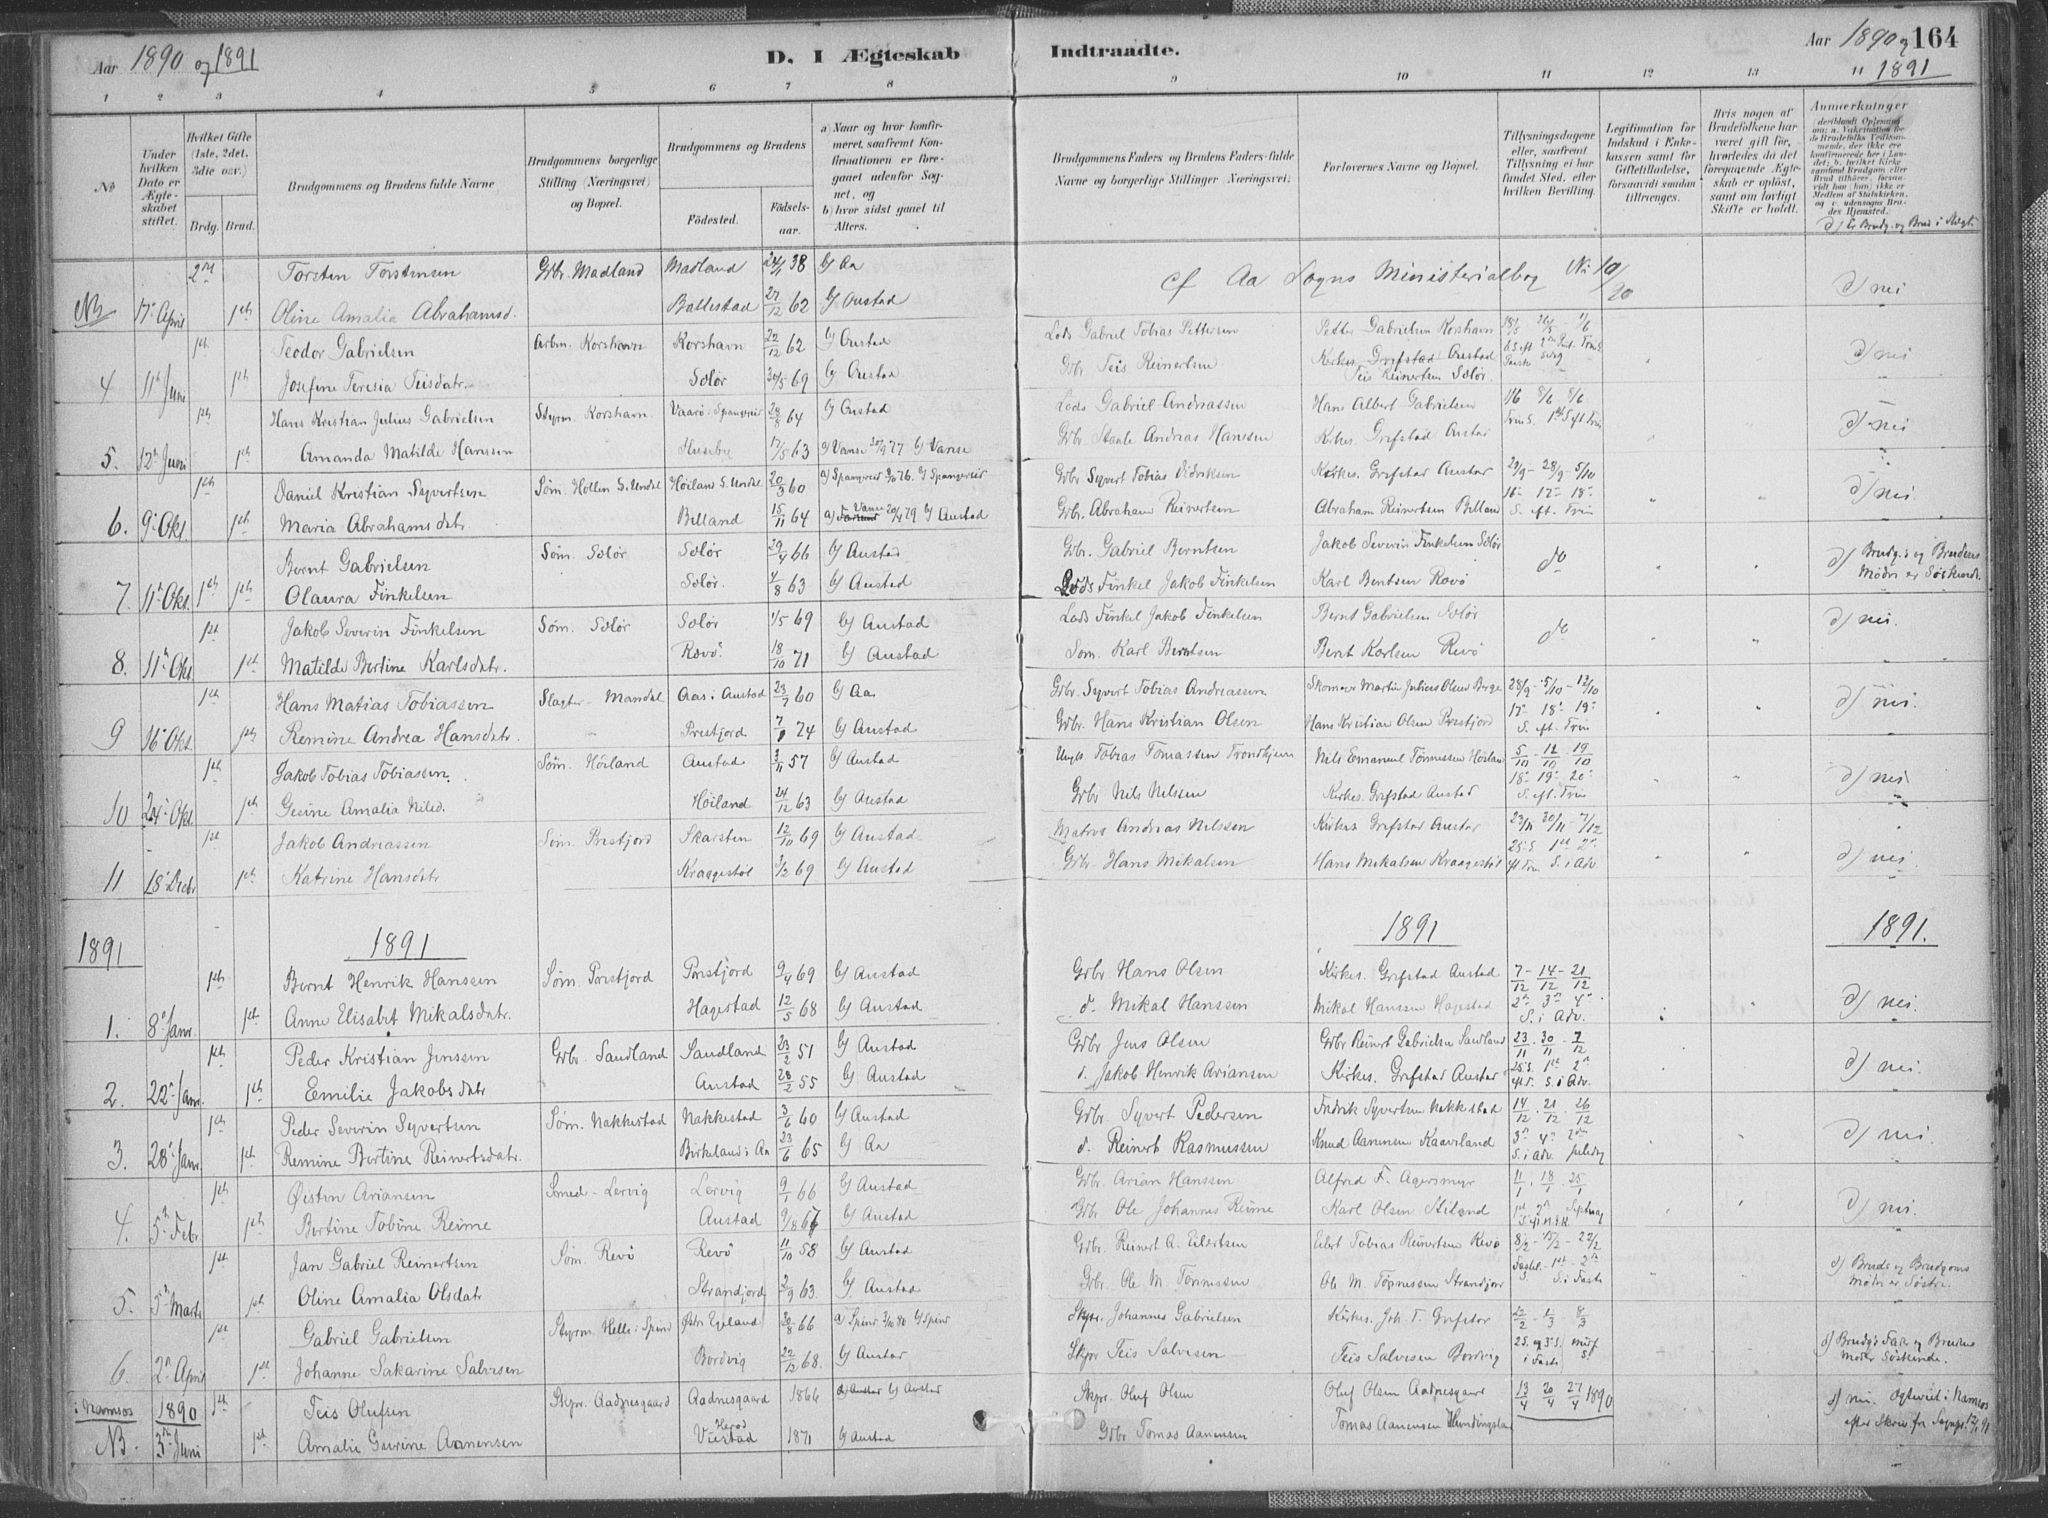 Aar 1890 og 1891
D. I Ægteskab Indtraadte.
Aar 1890 og 1891
164
1 2 3 4 5 6 7 8 9 10 11 12 13 14
No
Under hvilken Dato er Ægteskabet stiftet.
Hvilket Gifte (1ste, 2det, 3die osv.)
Brdg. Brud.
Brudgommens og Brudens fulde Navne
Brudgommens borgerlige Stilling (Næringsvei) og Bopæl.
Brudgommens og Brudens
Fødested. Fødselsaar.
a) Naar og hvor konfirmeret, saafremt Konfirmationen er foregaaet udenfor Sognet, og
b) hvor sidst gaaet til Alters.
Brudgommens Faders og Brudens Faders fulde Navne og borgerlige Stillinger (Næringsvei.
Forlovernes Navne og Bopæl.
Tillysningsdagene eller, saafremt Tillysning ei har fundet Sted, efter hvilken Bevilling.
Legitimation for Indskud i Enkekassen samt for Giftetilladelse, forsaavidt saadan tiltrænges.
Hvis nogen af Brudefolkene har været gift før, hvorledes da det foregaaende Ægteskab er opløst, samt om lovligt Skifte er holdt.
Anmærkninger
d) Er Brudg. og Brud i Slægt
2den Torsten Torstensen Grbr. Madland Madland 24/1 38 b) Aa cf Aa Sogns Ministerialbog No 10/90
NB 17de April 1ste Oline Amalia Abrahamsd. Ballestad 27/12 62 b) Austad d) nei
1ste Teodor Gabrielsen Arbm. Korshavn Korshavn 22/12 62 b) Austad Lods Gabriel Tobias Pettersen Petter Gabrielsen Korshavn 18/5 26/5 1/6
4 11te Juni 1ste Josefine Teresia Teisdatr. Sælør 30/5 69 b) Austad Grbr Teis Reinertsen Kirkes. Grefstad Austad Teis Reinertsen Sælør. d) nei
1ste Hans Kristian Julius Gabrielsen Styrm. Korshavn. Vaarø i Spangereid 28/8 64 b) Austad Lods Gabriel Andreassen Hans Albert Gabrielsen 1/6 8/6 8/6
5. 12te Juni 1ste Amanda Matilde Hanssen Huseby 17/5 63 a) Vanse 30/9 77 b) Vanse Grbr. Staale Andreas Hanssen Kirkes. Grefstad Austad d) nei
1ste Daniel Kristian Syvertsen Søm. Hollen S. Undal Høiland S. Undal 20/3 60 b) Spangereid Grbr Syvert Tobias Didriksen Kirkes. Grefstad Austad 21/9 - 28/9 - 5/10
6. 9de Okt. 1ste Maria Abrahamsdatr Billand 15/11 64 b) Austad Grbr. Abraham Reinertsen Abraham Reinertsen Billand 16de 17de 18de S. eft. Trin d) nei
Bernt Gabrielsen Søm. Sælør Sælør 29/4 66 b) Austad Grbr. Gabriel Berntsen Jakob Severin Finkelsen Sælør do
7. 11te Okt. 1ste 1ste Olaura Finkelsen Sælør. 4/8 63 b) Austad Lods Finkel Jakob Finkelsen Karl Bentsen Rævø d) Brudg.s og Brudens Mødre er Søskende.
1ste Jakob Severin Finkelsen Søm. Sælør Sælør 1/5 69 b) Austad Lods Finkel Jakob Finkelsen Bernt Gabrielsen Sælør do d) nei.
8. 11te Okt. 1ste Matilde Bertine Karlsdatr. Rævø 18/10 71 b) Austad Søm. Karl Berntsen Bernt Karlsen Revø
1ste Hans Matias Tobiassen Slagter - Mandal Aas i Austad 23/7 60 b) Aa Grbr. Syvert Tobias Andreassen Skomager Martin Julius Olsen Berge 28/9 - 5/10 - 12/10
9 16de Okt. 1ste Remine Andrea Hansdatr. Prestjord 74 b) Austad Grbr. Hans Kristian Olsen Hans Kristian Olsen Prestjord 17de 18de 19de S. eft. Trin d) nei
1ste Jakob Tobias Tobiassen. Søm. Høiland Austad 3/11 57 b) Austad Tobias Tomassen Trondhjem Nils Emanuel Tønnessen Høiland 5/10 - 12/10 - 19/10
10 24de Okt. 1ste Gesine Amalia Nilsd. Høiland 24/12 63 b) Austad Grbr Nils Nilssen Kirkes. Grefstad Austad 18de 19de 20de S. eft. Trin d) nei
1ste Jakob Andreassen Søm. Prestjord Skarsten 12/10 69 b) Austad Matros Andreas Nilssen Kirkes Grefstad Austad 23/11 30/11 - 7/12
11 18de Decbr 1ste Katrine Hansdatr Kraagestøl 3/12 69 b) Austad Grbr. Hans Mikalsen Hans Mikalsen Kraagestøl 25. S. eft. Trin 1ste 2den S. i Adv. d) nei.
1891 1891 1891 1891.
1ste Bernt Henrik Hanssen Søm. Prestjord Prestjord 9/4 69 b) Austad Grbr Hans Olsen Kirkes. Grefstad Austad 7/12 - 14/12 - 21/12
1. 8de Janr. 1ste Anne Elisabet Mikalsdatr. Hagestad 12/5 68 b) Austad d. Mikal Hanssen Mikal Hanssen Hagestad 2den 3die 4de S. i Adv. d) nei
1ste Peder Kristian Jenssen Grbr Sandland Sandland 23/2 51 b) Austad Grbr Jens Olsen Grbr Reinert Gabrielsen Sandland 23/11 . 30/11 - 7/12
2. 22de Janr. 1ste Emilie Jakobsdatr Austad 28/2 55 b) Austad d. Jakob Henrik Ariansen Kirkes. Grefstad Austad 25. S. eft. T. 1ste 2den S. i Adv. d) nei.
1ste Peder Severin Syvertsen Søm. Nakkestad Nakkestad 3/6 60 b) Austad Grbr. Syvert Pedersen Fredrik Syvertsen Nakkestad 14/12 . 21/12 . 26/12
3. 28de Janr. 1ste Remine Bertine Reinertsdatr. Birkeland i Aa 23/6 65 b) Aa d. Reinert Rasmussen Knud Aanensen Kaaviland 3die 4de 2den S. i Adv. juledag d) nei.
1ste Øistin Ariansen Smed - Lervig Lervig 9/1 66 b) Austad Grbr. Arian Hanssen Alfred F. Agersmyr 11/1 . 18/1 . 25/1
4. 5te Febr. 1ste Bertine Tobine Reime Austad 9/8 67 b) Austad Grbr. Ole Johannes Reime Karl Olsen Stiland 1ste 2den d) nei.
1ste Jan Gabriel Reinertsen Søm. Revø Revø 11/10 58 b) Austad Grbr. Reinert A. Eilertsen Eilert Tobias Reinertsen Revø 8/2 - 15/2 - 22/2
5. 5te Marts 1ste Oline Amalia Olsdatr Strandjord 2/9 63. b) Austad Grbr. Ole M. Tønnessen Ole M. Tønnessen Strandjord Fastel. S. 1ste - 2den S. i Faste d) Bruds og Brudgoms mødre er Søstre.
1ste Gabriel Gabrielsen Styrm. Helle i Spind Østre Egeland 20/8 66 a) Spind 3/10 80 b) Spind Skpr. Johannes Gabrielsen Kirkes. Joh. T. Grefstad 22/2 - 1/3 8/3
6. 2den April 1ste Johanne Sakarine Salvesen Bordvig 22/12 68. b) Austad Skpr Teis Salvesen Teis Salvesen Bordvig d) Brudg's Far og Brudens Moder Søskende.
i Namsos 1890 1ste Teis Olufsen Skpr. Aadnesgaard Aadnesgaard 1866 a) Austad b) Austad Skpr. Oluf Olsen Oluf Olsen Aadnesgaard 13/4 20/4 27/4 1890 d) nei. Ogteviet i Namsos
NB. 3die Juni 1ste Amalie Gurine Aanensen Viestad Herad 1871 b) Austad Grbr Tomas Aanensen Tomas Aanensen efter Skriv. fra Sognpr.